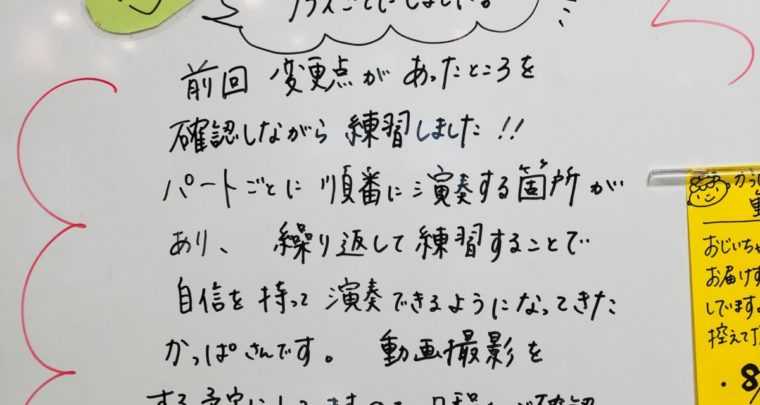 前回 変更点が あったところを
確認しながら 練習しました!!
パートごとに 順番に演奏する箇所が
あり、 繰り返して練習することで
自信を持って 演奏できるようになってきた
かっぱさんです。 動画撮影を
する予定にして
おじいちゃ
お届けす
しています。
控えて
・8/